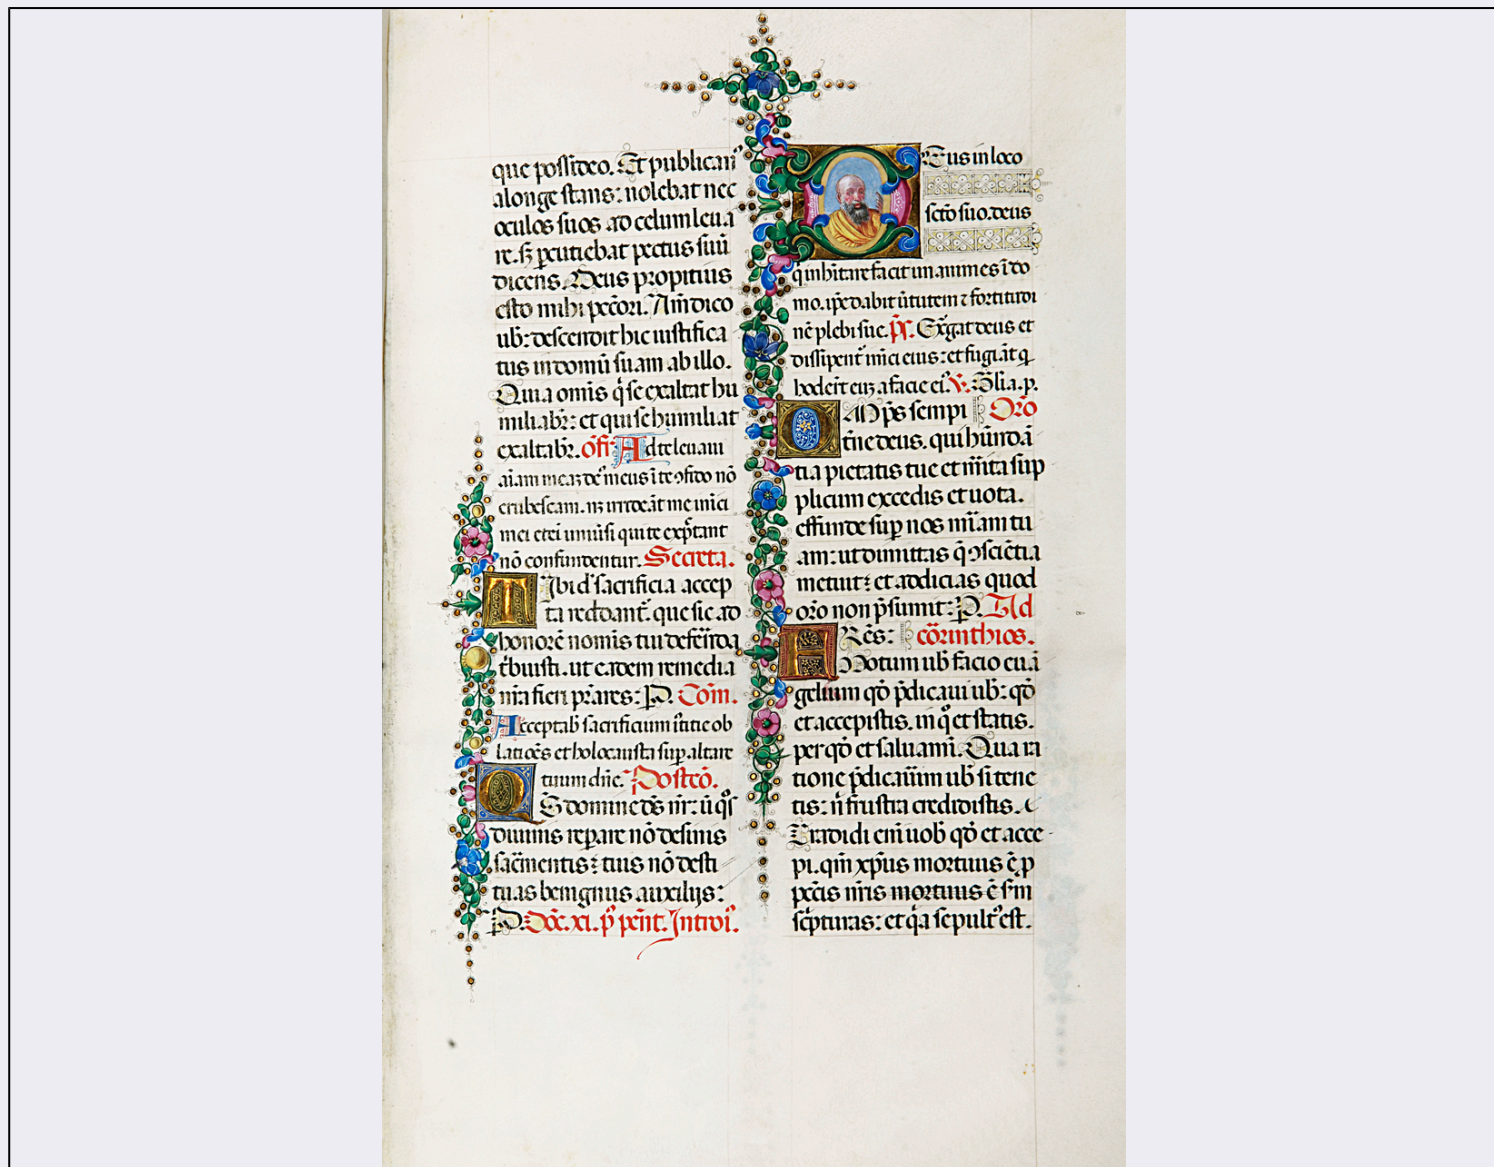 que possideo. Et publican᷒
a longe stans: nolebat nec
oculos suos ad celum leua
re. sꝫ ꝑcutiebat pectus suū
dicens. Deus propitius
esto mihi pcc̄ori. Am̄ dico
ub̄: descendit hic iustifica
tus in domū suam ab illo.
Quia omīs q̇ se exaltat hu
miliabr̄: et qui se humiliat
exaltabr̄. off̄. Ad te leuaui
aīam meaꝫ de᷒ meus ī te ↄfido nō
erubescam. nꝫ irrideāt me inīci
mei eteī uniūsi qui te exp̄tant
nō confundentur. Secreta.
Tibi d᷒ sacrificia accep
ta reddant᷑. que sic ad
honorē nomīs tui defērda
t̄buisti. ut eadem remedia
nr̄a fieri p̄tares: P. Com̄.
Acceptab̄ sacrificium īstitie ob
latiōēs et holocausta suꝑ altare
tuum dn̄e. Postcō.
QS domine dē nr̄: ū q᷒s
diuinis repare nō desinis
sac̄mentis: tuis nō desti
tuas benignus auxilijs:
P. Doc̄. xi. p᷒ pent̄. Introi᷒.
Deus in loco
sc̄to suo. deus
q̇ inhītare facit unanimes ī do
mo. ip̄e dabit ūtutem ⁊ fortitudi
nē plebi sue. p̄s. Exgat deus et
dissipent᷑ inīci eius: et fugiāt q̇
hoder̄t euꝫ a facie ei᷒. V. Gl̄ia. p.
OMp̄s sempi Orō
t̄ne deus. qui hūndā
tia pietatis tue et m̄ita sup
plicum excedis et uota.
effunde suꝑ nos mīam tu
am: ut dimittas q̄ ↄsciētia
metuit: et addicias quod
orō non p̄sumit: P. Ad
Res: cōrinthios.
FNotum ub̄ facio euā
gelium qđ p̄dicaui ub̄: qđ
et accepistis. in q̇ et statis.
per qđ et saluamī. Qua ra
tione p̄dicauīm ub̄ si tene
tis: n̄ frustra credidistis.
Tradidi enī uob̄ qđ et acce
pi. qm̄ xp̄us mortuus ē p
pcc̄is nr̄is mortuus ē sm̄
sc̄pturas: et q̇a sepult᷒ est.